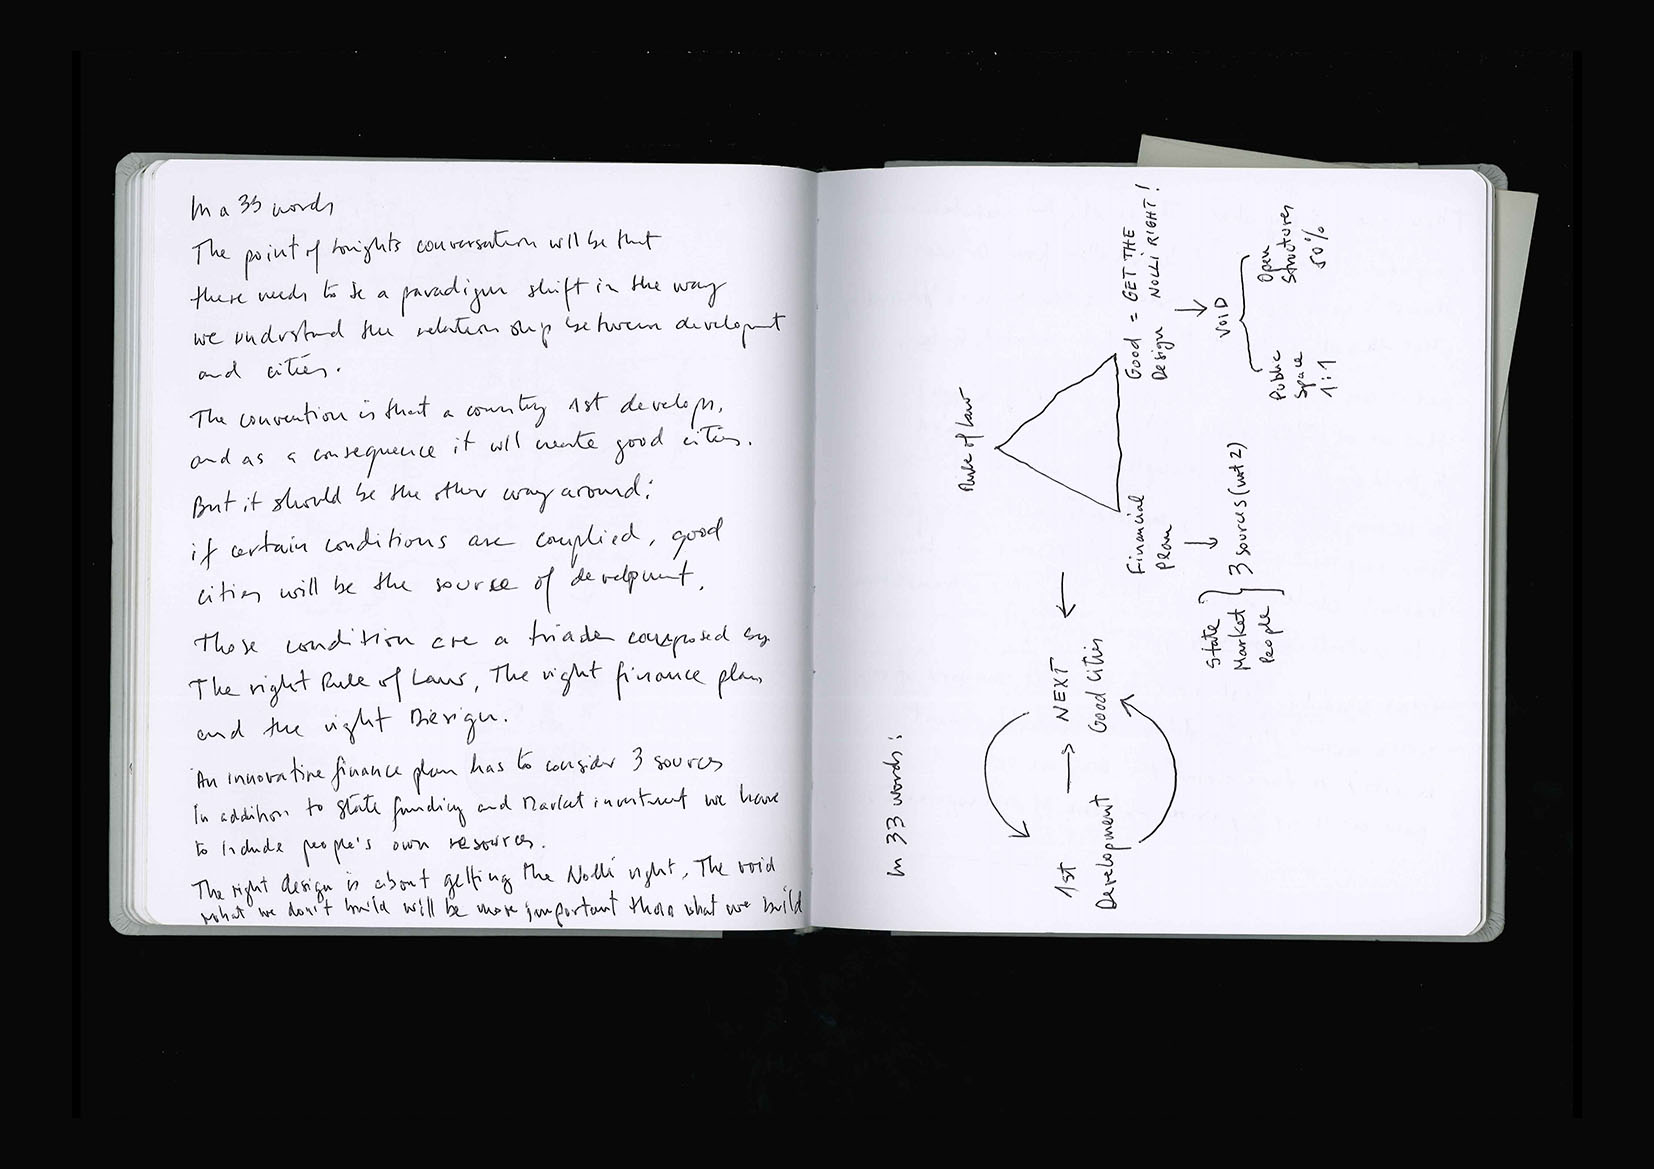 In a 33 words
The point of tonights conversation will be that
there needs to be a paradigm shift in the way
we undrstand the relationship between development
and cities.
The convention is that a country 1st develops,
and as a consequence it will create good cities.
But it should be the other way around:
if certain conditions are complied, good
cities will be the source of development.
Those condition are a triade composed by
The right Rule of Law, The right finance plan
and the right Design.
An innovative finance plan has to consider 3 sources
In addition to state funding and Market investment we have
to include people's own resources.
The right design is about getting the Nolli right, The void
what we don't build will be more important than what we build
In 33 words:
1st → NEXT ←
Development Good Cities
Rule of Law
Financial Plan
Good Design = GET THE NOLLI RIGHT!
State
Market
People
3 sources (not 2)
VOID
Public
Space
1:1
Open
Structures
50%